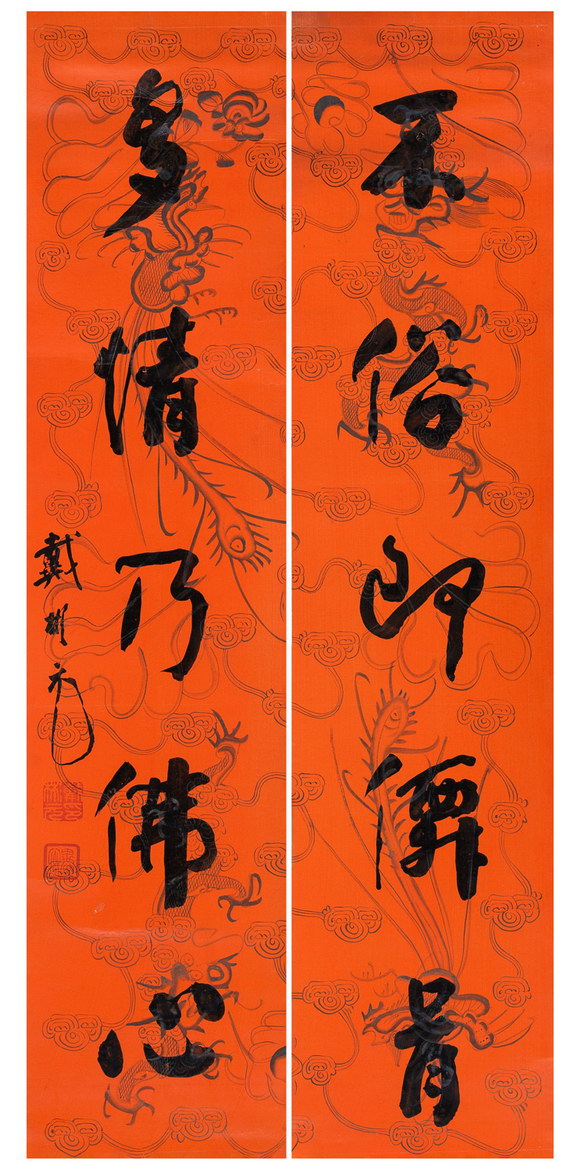 不俗即僊骨
多情乃佛心
戴彬元